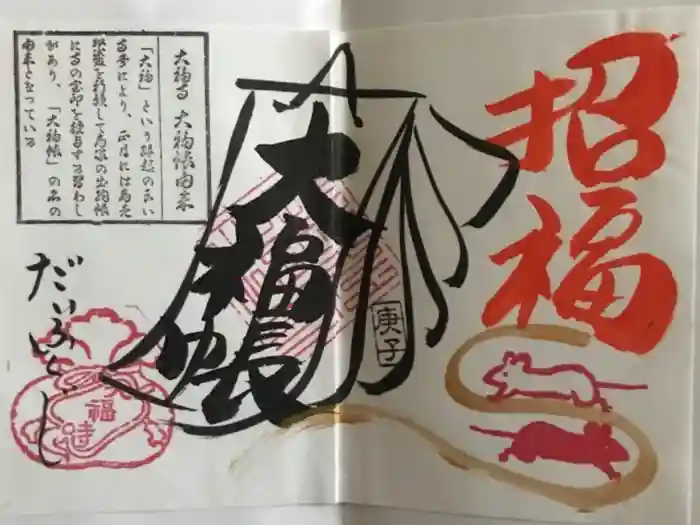 招福
大福帳
庚子
大福寺 大福帳由来
「大福」という縁起のよい
寺号により、正月には商売
繁盛を祈願して商家の出納帳
に寺の宝印を授与する習わし
があり、「大福帳」の名の
由来となっている
だいふくじ
福寺